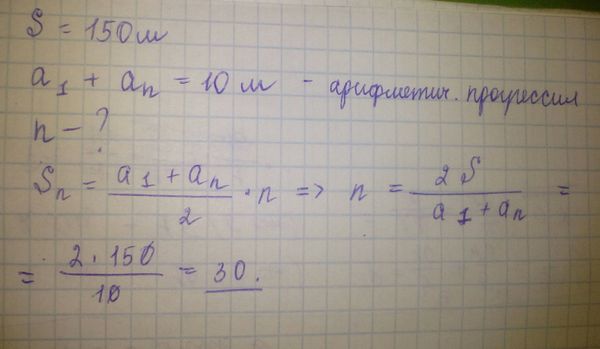 S = 150 м
a₁ + aₙ = 10 м - арифметич. прогрессия
n - ?
Sₙ = (a₁ + aₙ)/2 · n => n = 2S/(a₁ + aₙ) =
= (2 · 150)/10 = 30.